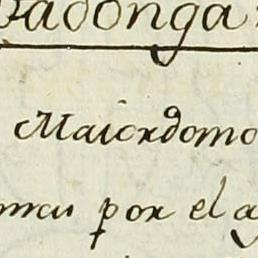 adonga
Maiordomo
por el a